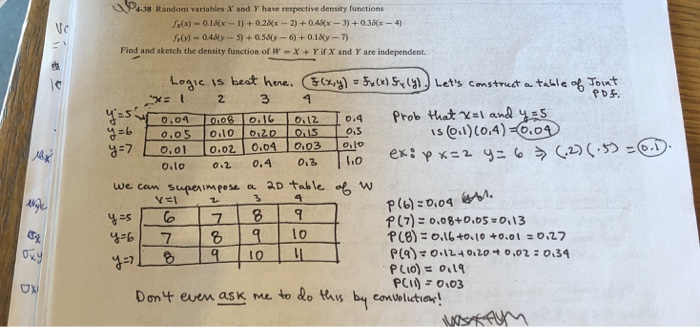 4-38 Random variables X and Y have respective density functions
fₓ(x) = 0.1δ(x − 1) + 0.2δ(x − 2) + 0.4δ(x − 3) + 0.3δ(x − 4)
fᵧ(y) = 0.4δ(y − 5) + 0.5δ(y − 6) + 0.1δ(y − 7)
Find and sketch the density function of W = X + Y if X and Y are independent.
Logic is best here. f(x,y) = fₓ(x) fᵧ(y). Let's construct a table of Joint PDF.
x= 1 2 3 4
y=5 0.04 0.08 0.16 0.12 0.4
y=6 0.05 0.10 0.20 0.15 0.5
y=7 0.01 0.02 0.04 0.03 0.10
0.10 0.2 0.4 0.3 1.0
Prob that x=1 and y=5
is (0.1)(0.4) = 0.04
ex: p x=2 y=6 ⇒ (.2)(.5) = 0.1.
We can superimpose a 2D table of W
x=1 2 3 4
y=5 6 7 8 9
y=6 7 8 9 10
y=7 8 9 10 11
P(6)=0.04
P(7)=0.08+0.05=0.13
P(8)=0.16+0.10+0.01=0.27
P(9)=0.12+0.20+0.02=0.34
P(10)=0.19
P(11)=0.03
Don't even ask me to do this by convolution!